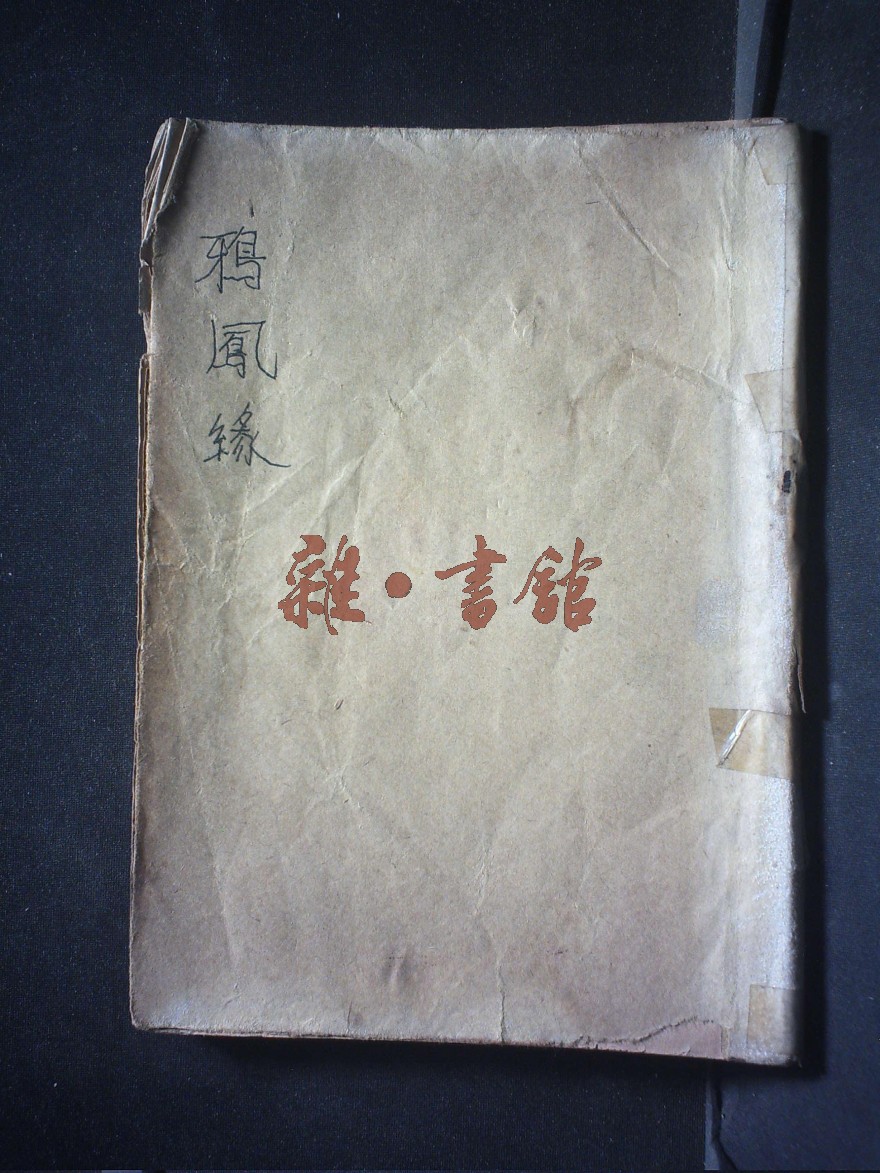 鴉鳳緣
雜·書館